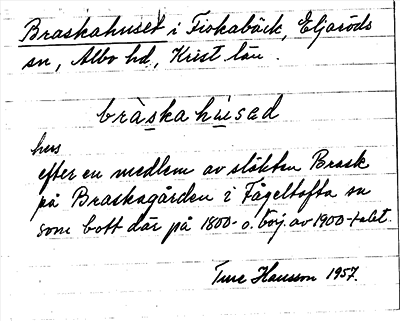 Braskahuset i Fiskabäck, Eljaröds
sn, Albo hd, Krist län.
bràska húsad
hus
efter en medlem av släkten Brask
på Braskagården i Fågeltofta sn
som bott där på 1800- o. börj. av 1900-talet.
Ture Hansson 1957.